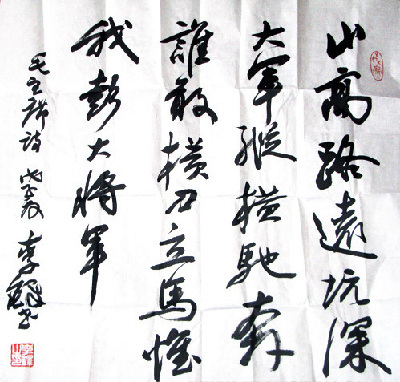 山高路遠坑深
大軍縱横馳奔
誰敢横刀立馬惟
我彭大將軍
毛主席詩 戊子春 李